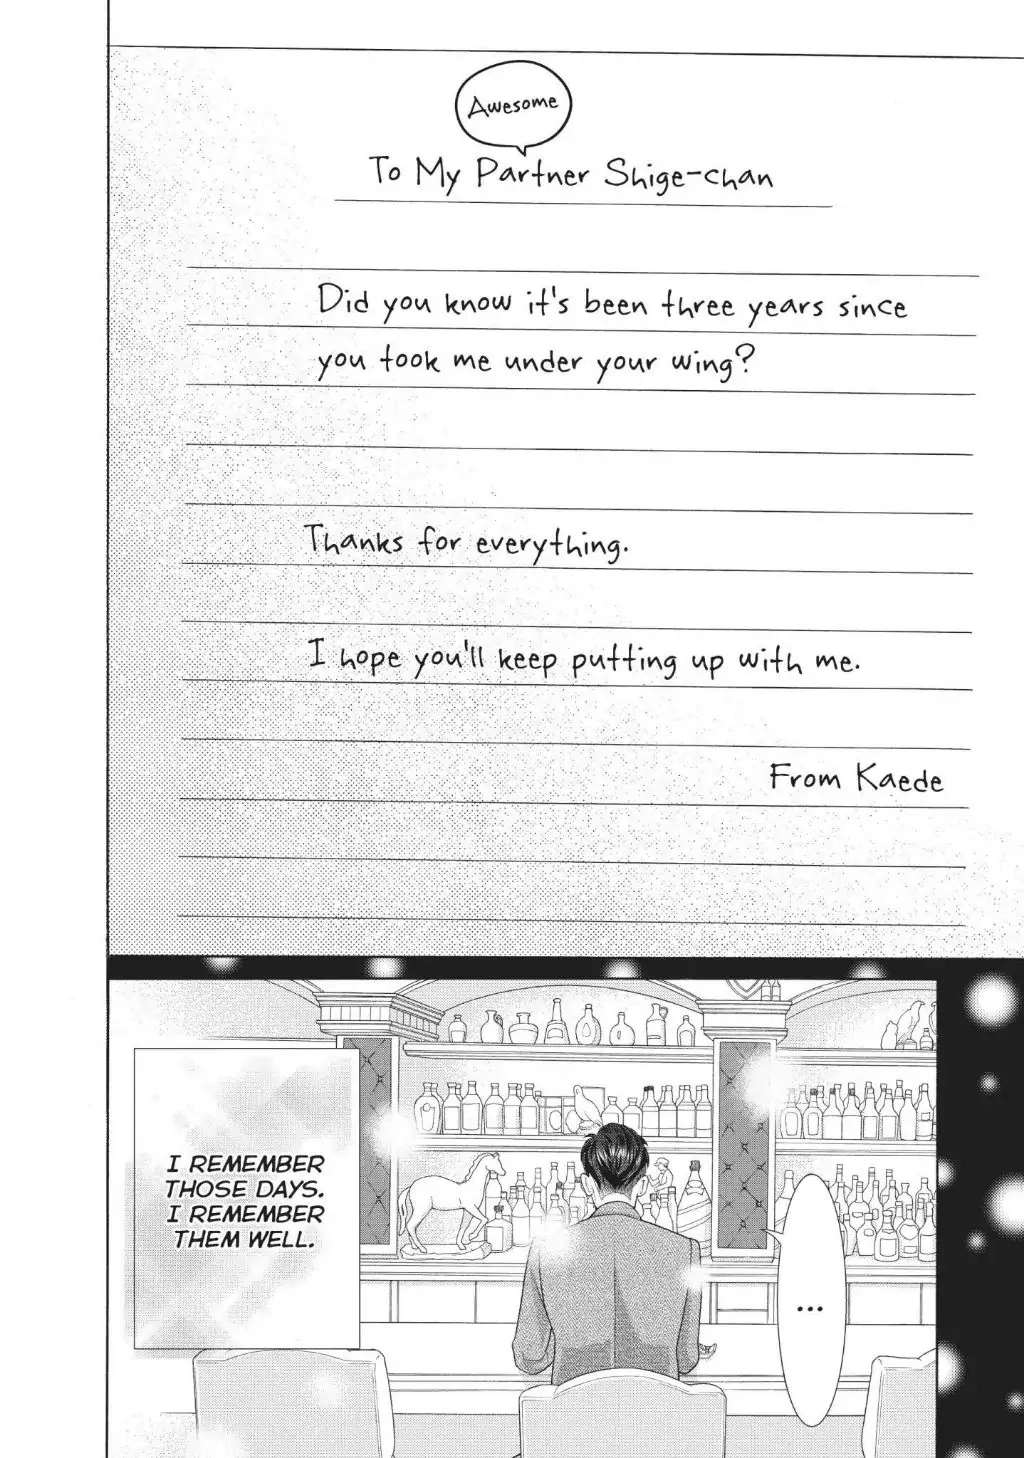 Awesome
To My Partner Shige-chan
Did you know it's been three years since
you took me under your wing?
Thanks for everything.
I hope you'll keep putting up with me.
From Kaede
I REMEMBER
THOSE DAYS.
I REMEMBER
THEM WELL.
...